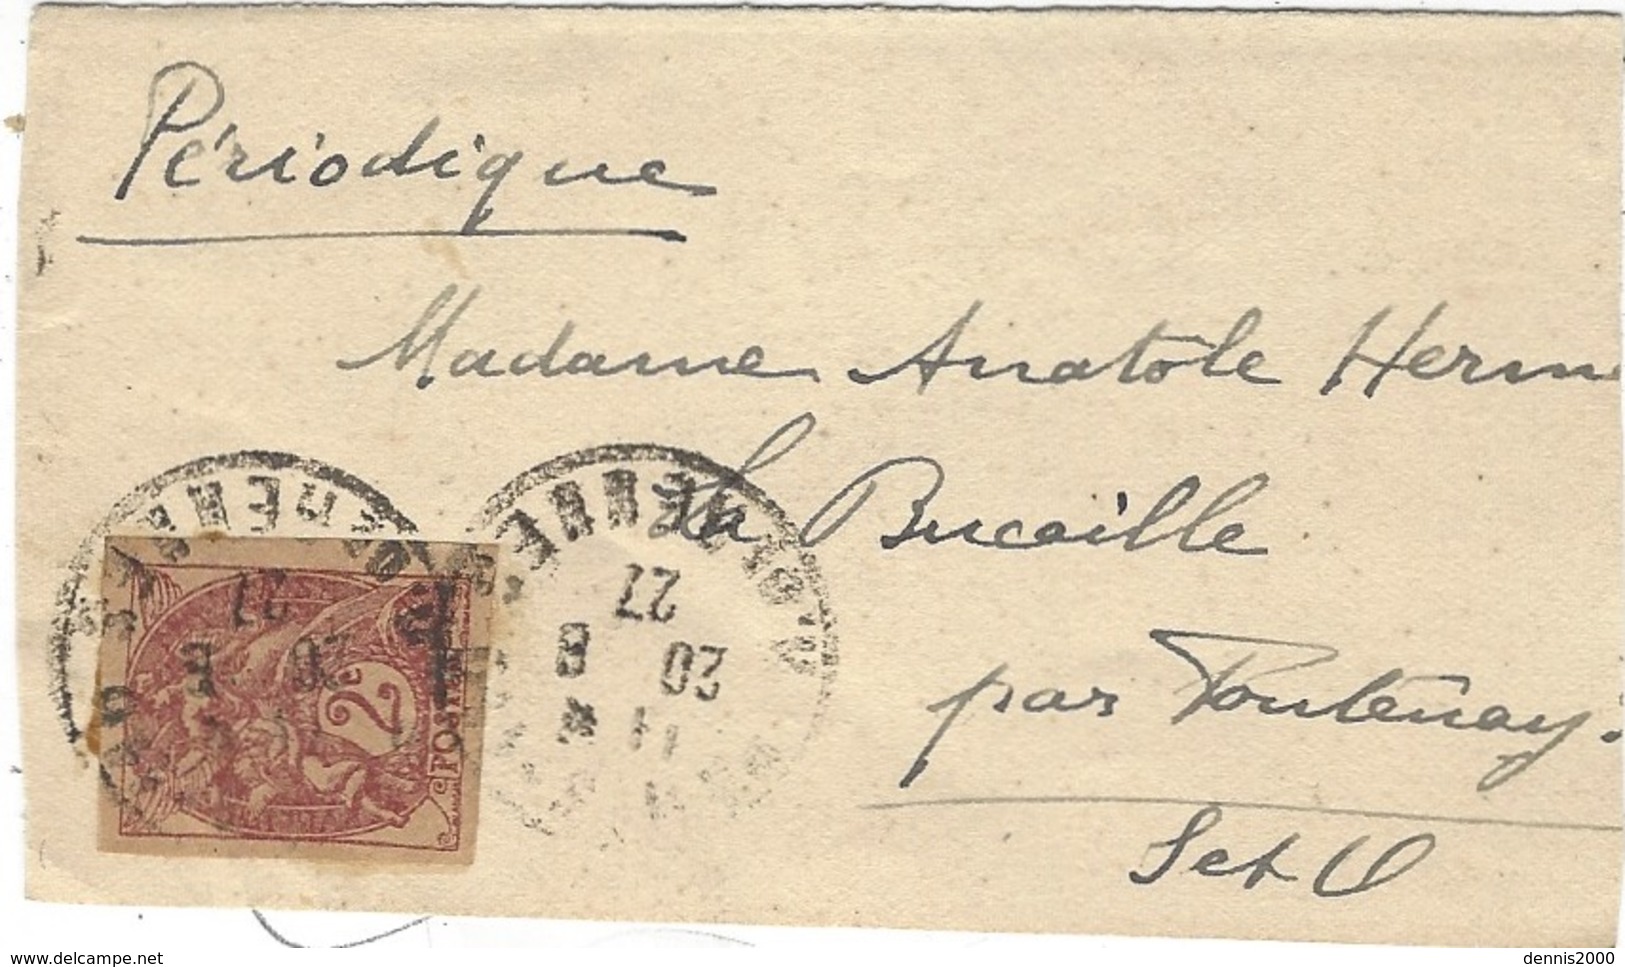 Périodique
Madame Anatole Herm
La Bucaille
par Fontenay
Set O
2c
POSTES
27
20
8
11
27
20
delcampe.net
dennis2000